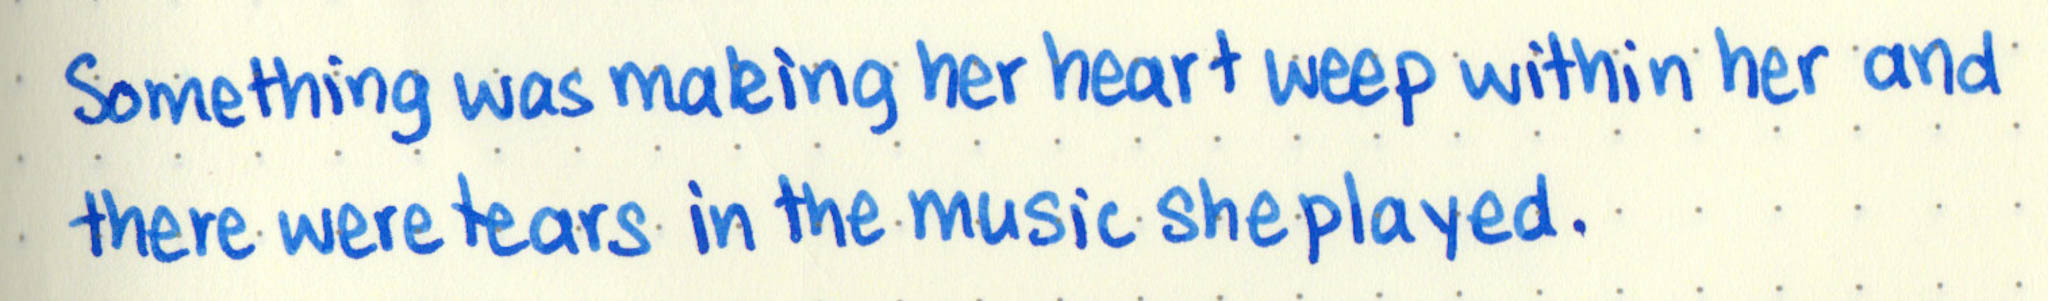 Something was making her heart weep within her and
there were tears in the music she played.